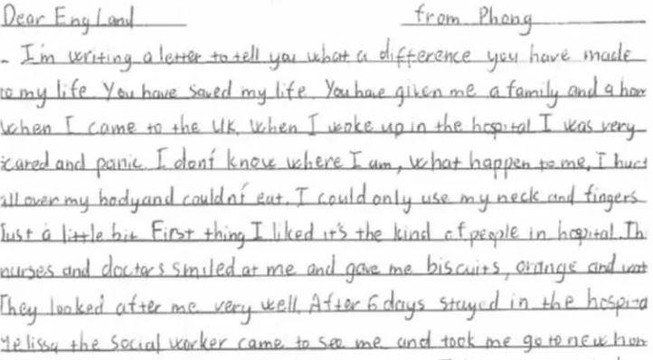 Dear England from Phong
- I'm writing a letter to tell you what a difference you have made
to my life. You have saved my life. You have given me a family and a hom
when I came to the UK. When I woke up in the hospital I was very
scared and panic. I don't know where I am, what happen to me, I hurt
all over my body and couldn't eat. I could only use my neck and fingers
Just a little bit. First thing I liked it's the kind of people in hospital. Th
nurses and doctors smiled at me and gave me biscuits, orange and wat
They looked after me very well. After 6 days stayed in the hospita
Melissa the social worker came to see me and took me go to new hom